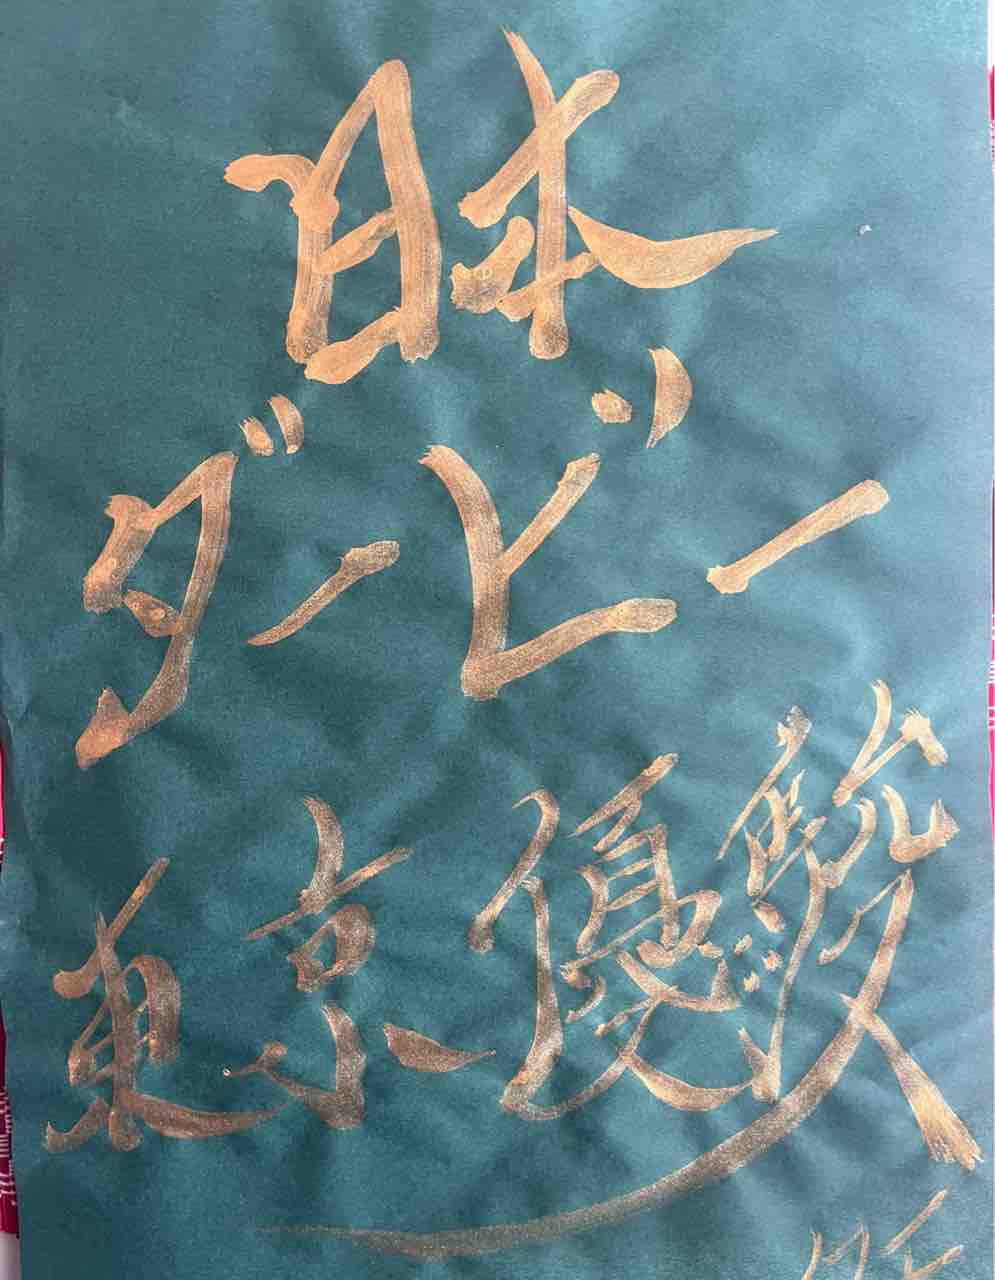 日本
ダービー
東京優駿